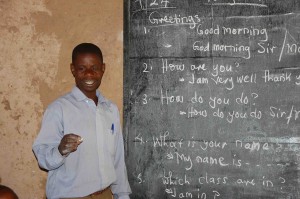 Greetings
1. Good morning
- Good morning Sir/M
2. How are you?
- I am very well thank y
3. How do you do?
- How do you do Sir/
4. What is your name?
- My name is - -
5. Which class are in?
- I am in?